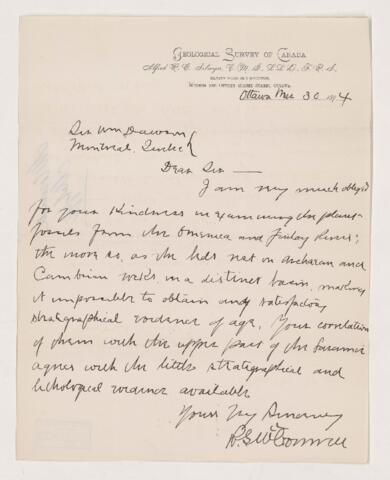 Geological Survey of Canada
Alfred R. C. Selwyn, C. M. G., L.L.D., F. R. S.
Museum and Offices Sussex Street, Ottawa.
Ottawa Mar 30 1894
Sir Wm Dawson
Montreal, Quebec
Dear Sir
I am very much obliged
for your kindness in examining the plant
fossils from the Omenica and Finlay Rivers;
the more so, as the beds rest on Archæan and
Cambrian rocks in a distinct basin, making
it impossible to obtain any satisfactory
stratigraphical evidence of age. Your correlation
of them with the upper part of the Laramie
agrees with the little stratigraphical and
lithological evidence available
Yours Very Sincerely
R. G. McConnell